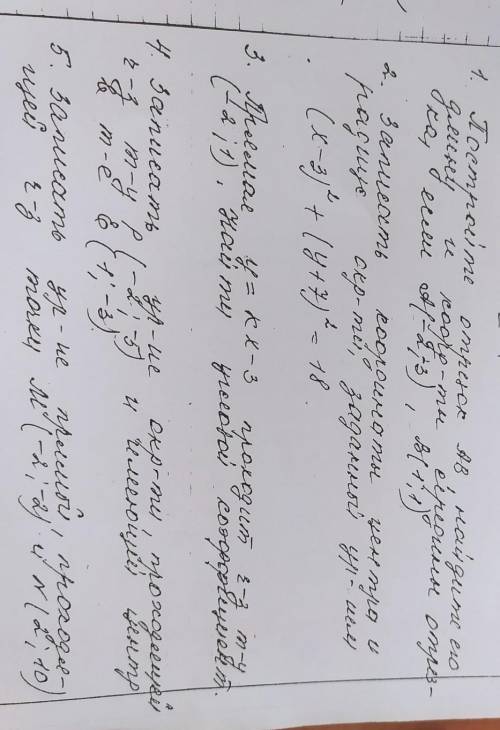 1. Постройте отрезок AB найдите его
длину и коор-ты середины отрез-
ка, если A(-2;3), B(1;1)
2. Записать координаты центра и
радиус окр-ти, заданный ур-ием
(x-3)² + (y+7)² = 18.
3. Прямая y = kx-3 проходит ч-з т-у
(-2;1), найти угловой коэффициент.
4. Записать ур-ие окр-ти, проходящей
ч-з т-у P(-2;-5) и имеющей центр
в т-е E(1;-3)
5. Записать ур-ие прямой, проходя-
щей ч-з точки M(-2;-2) и N(2;10)